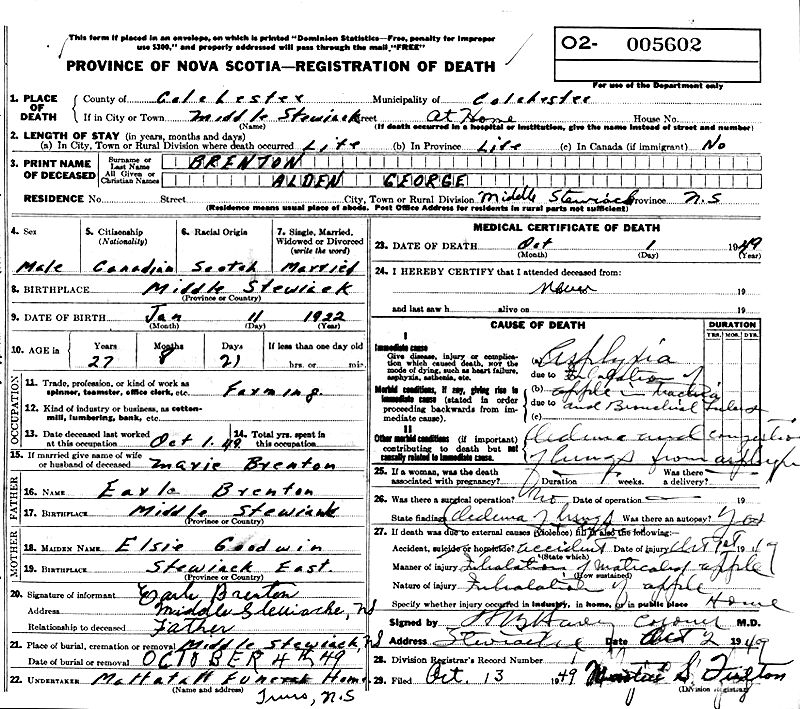 This form if placed in an envelope, on which is printed "Dominion Statistics—Free, penalty for improper
use $300," and properly addressed will pass through the mail "FREE"
O2- 005602
PROVINCE OF NOVA SCOTIA—REGISTRATION OF DEATH
For use of the Department only
1. PLACE OF DEATH County of Colchester Municipality of Colchester
If in City or Town Middle Stewiack Street At Home House No.
(Name) (If death occurred in a hospital or institution, give the name instead of street and number)
2. LENGTH OF STAY (in years, months and days)
(a) In City, Town or Rural Division where death occurred Life (b) In Province Life (c) In Canada (if immigrant) No
3. PRINT NAME OF DECEASED Surname or Last Name BRENTON
All Given or Christian Names ALDEN GEORGE
RESIDENCE No. Street City, Town or Rural Division Middle Stewiack Province N.S
(Residence means usual place of abode. Post Office Address for residents in rural parts not sufficient)
4. Sex 5. Citizenship (Nationality) 6. Racial Origin 7. Single, Married, Widowed or Divorced (write the word)
Male Canadian Scotch Married
8. BIRTHPLACE Middle Stewiack
(Province or Country)
9. DATE OF BIRTH Jan 11 1922
(Month) (Day) (Year)
10. AGE in Years Months Days If less than one day old
27 8 21 hrs. or min.
OCCUPATION
11. Trade, profession, or kind of work as spinner, teamster, office clerk, etc. Farming
12. Kind of industry or business, as cotton-mill, lumbering, bank, etc.
13. Date deceased last worked at this occupation Oct 1. 49 14. Total yrs. spent in this occupation
15. If married give name of wife or husband of deceased Marie Brenton
FATHER
16. NAME Earle Brenton
17. BIRTHPLACE Middle Stewiack
(Province or Country)
MOTHER
18. MAIDEN NAME Elsie Goodwin
19. BIRTHPLACE Stewiack East.
(Province or Country)
20. Signature of informant Earle Brenton
Address Middle Stewiacke, NS
Relationship to deceased Father
21. Place of burial, cremation or removal Middle Stewiack, NS
Date of burial or removal OCTOBER 4th 49
22. UNDERTAKER Mattatall Funeral Home
(Name and address)
Truro, N.S
MEDICAL CERTIFICATE OF DEATH
23. DATE OF DEATH Oct 1 1949
(Month) (Day) (Year)
24. I HEREBY CERTIFY that I attended deceased from:
Never 19
and last saw h alive on 19
CAUSE OF DEATH DURATION
YRS. MOS. DYS.
I
Immediate cause
Give disease, injury or complication which caused death, not the mode of dying, such as heart failure, asphyxia, asthenia, etc.
(a) Asphyxia
due to Inhalation of
Morbid conditions, if any, giving rise to immediate cause (stated in order proceeding backwards from immediate cause).
(b) apple in trachea
due to and Bronchial
(c)
II
Other morbid conditions (if important) contributing to death but not causally related to immediate cause.
Oedema and congestion
of lungs from
25. If a woman, was the death associated with pregnancy? Duration weeks. Was there a delivery?
26. Was there a surgical operation? No Date of operation 19
State findings Oedema of lungs Was there an autopsy? Yes
27. If death was due to external causes (violence) fill in also the following:—
Accident, suicide or homicide? accident Date of injury Oct 1st 1949
(State which)
Manner of injury Inhalation of of apple
(How sustained)
Nature of injury Inhalation of apple
Specify whether injury occurred in industry, in home, or in public place Home
Signed by Coroner M.D.
Address Stewiacke Date Oct 2 1949
28. Division Registrar's Record Number 1
29. Filed Oct. 13 1949 Fulton
(Division Registrar)